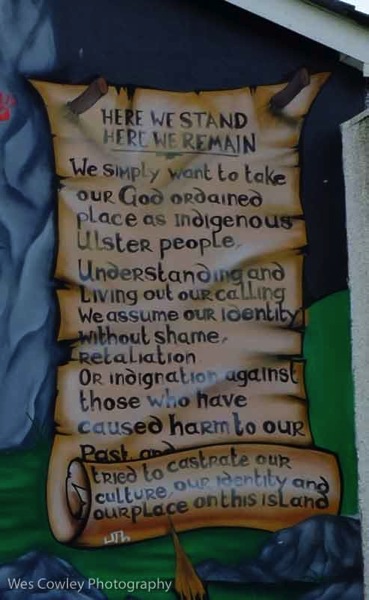 HERE WE STAND
HERE WE REMAIN
We simply want to take
our God ordained
place as Indigenous
Ulster people.
Understanding and
Living out our calling
We assume our Identity
without shame,
retaliation
Or indignation against
those who have
caused harm to our
Past, and
tried to castrate our
culture, our identity and
our place on this island
Wes Cowley Photography